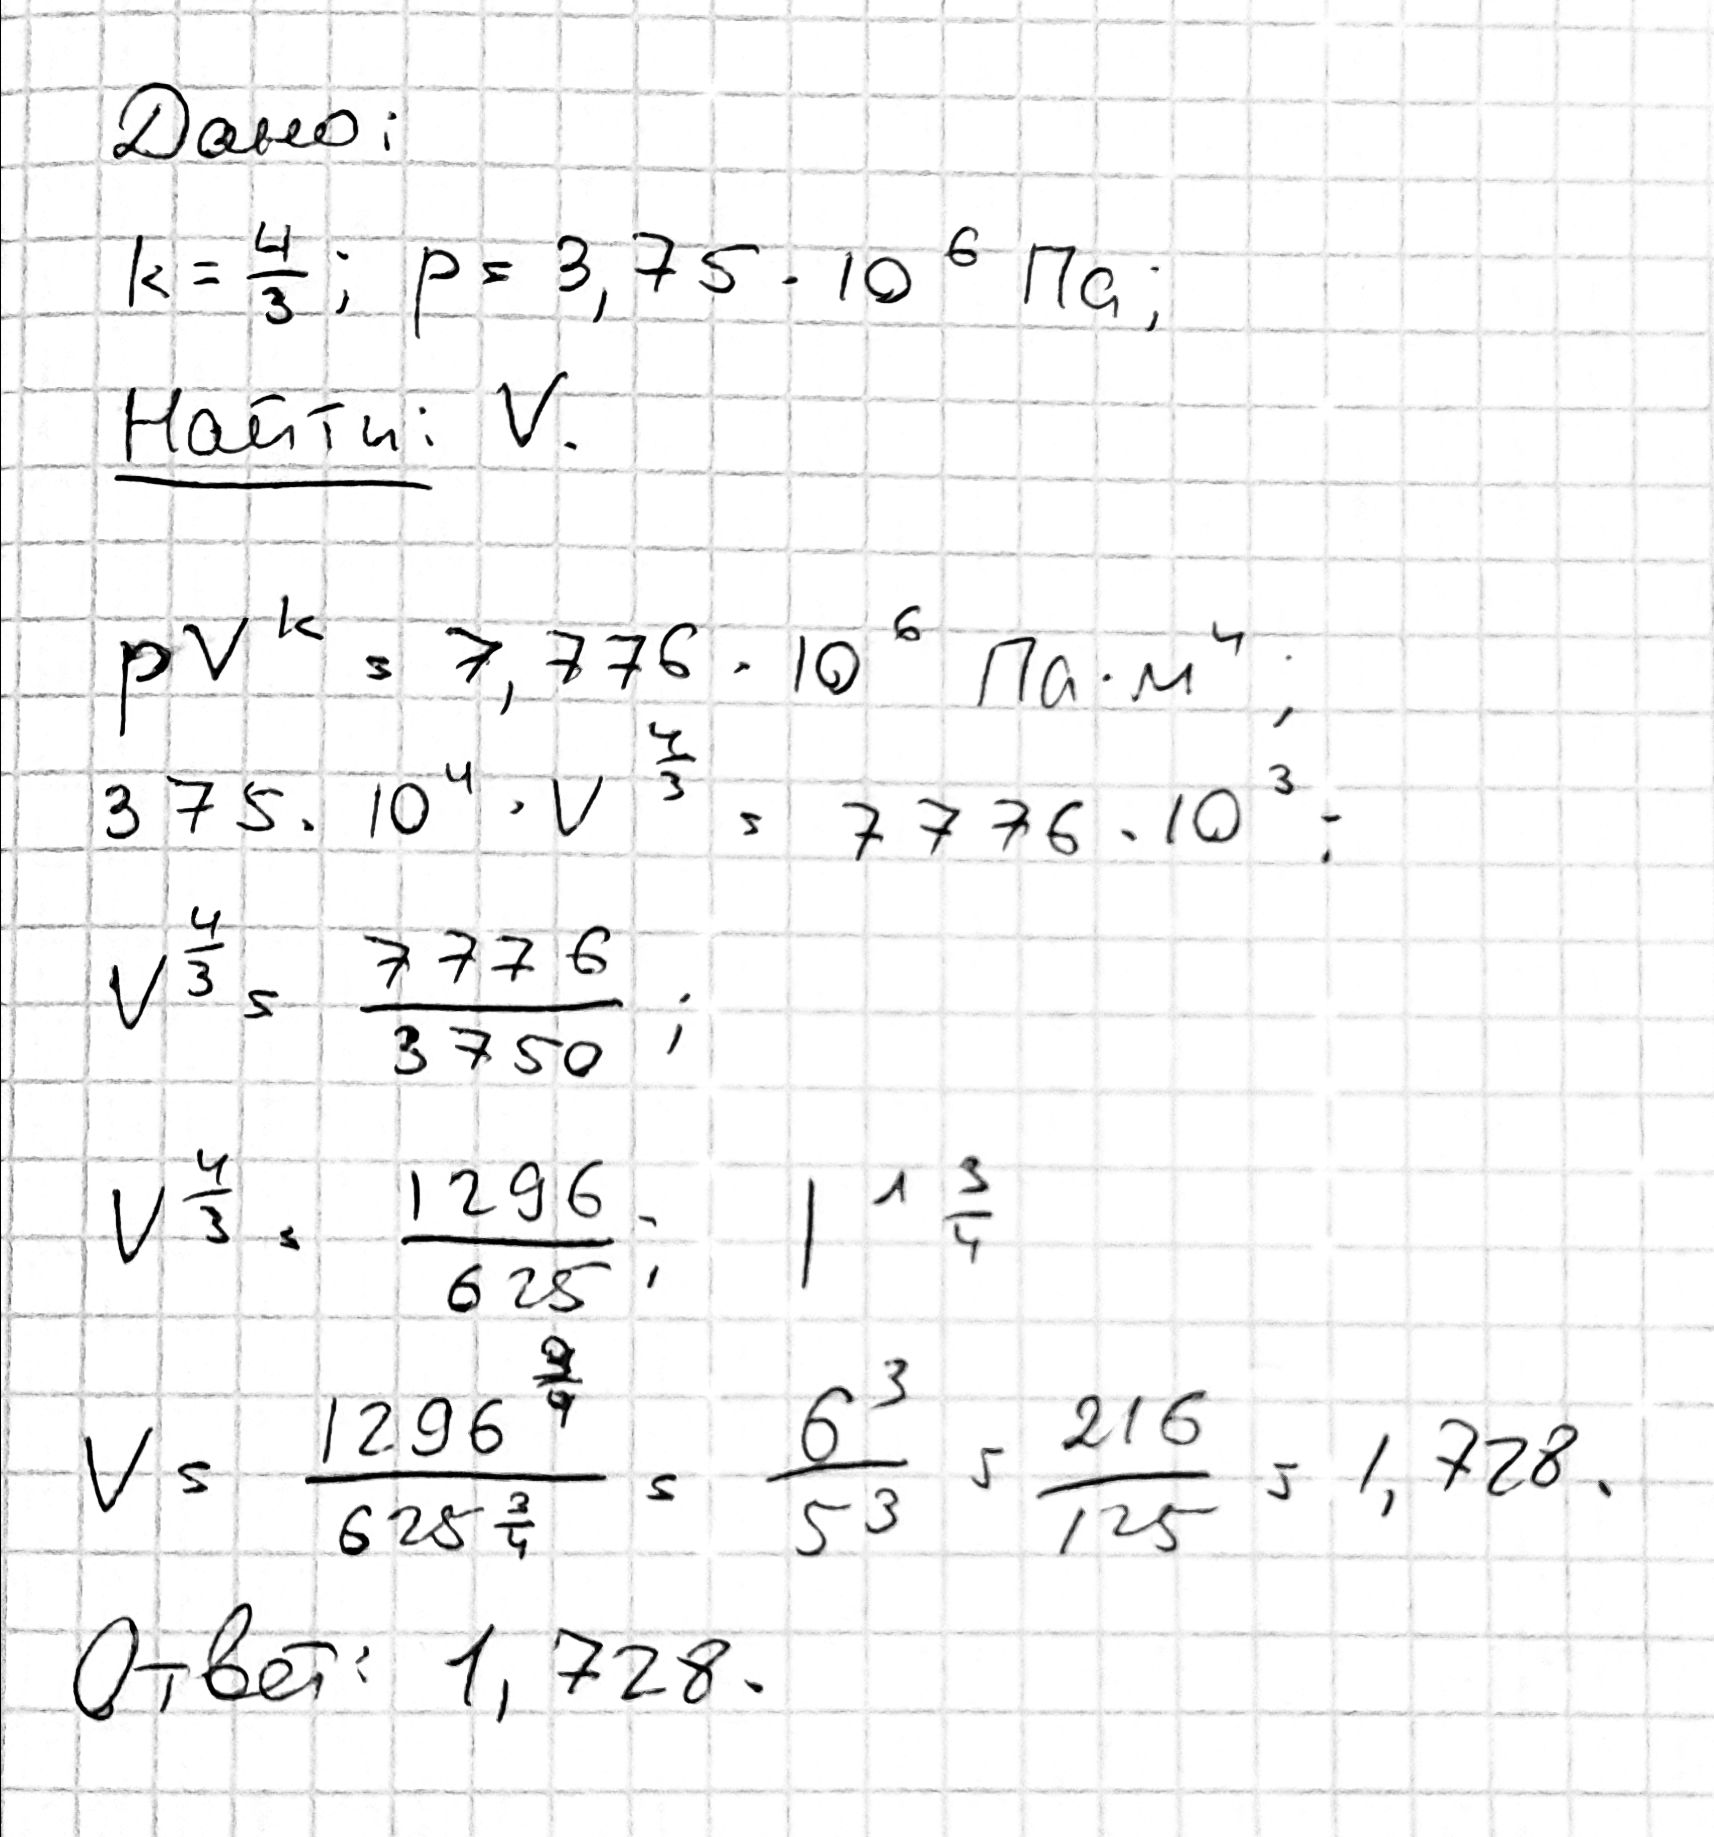 Дано:
k = 4/3; p = 3,75 · 10^6 Па;
Найти: V.
pV^k = 7,776 · 10^6 Па · м^4;
375 · 10^4 · V^(4/3) = 7776 · 10^3;
V^(4/3) = 7776/3750;
V^(4/3) = 1296/625; |^(3/4)
V = 1296^(3/4)/625^(3/4) = 6^3/5^3 = 216/125 = 1,728.
Ответ: 1,728.